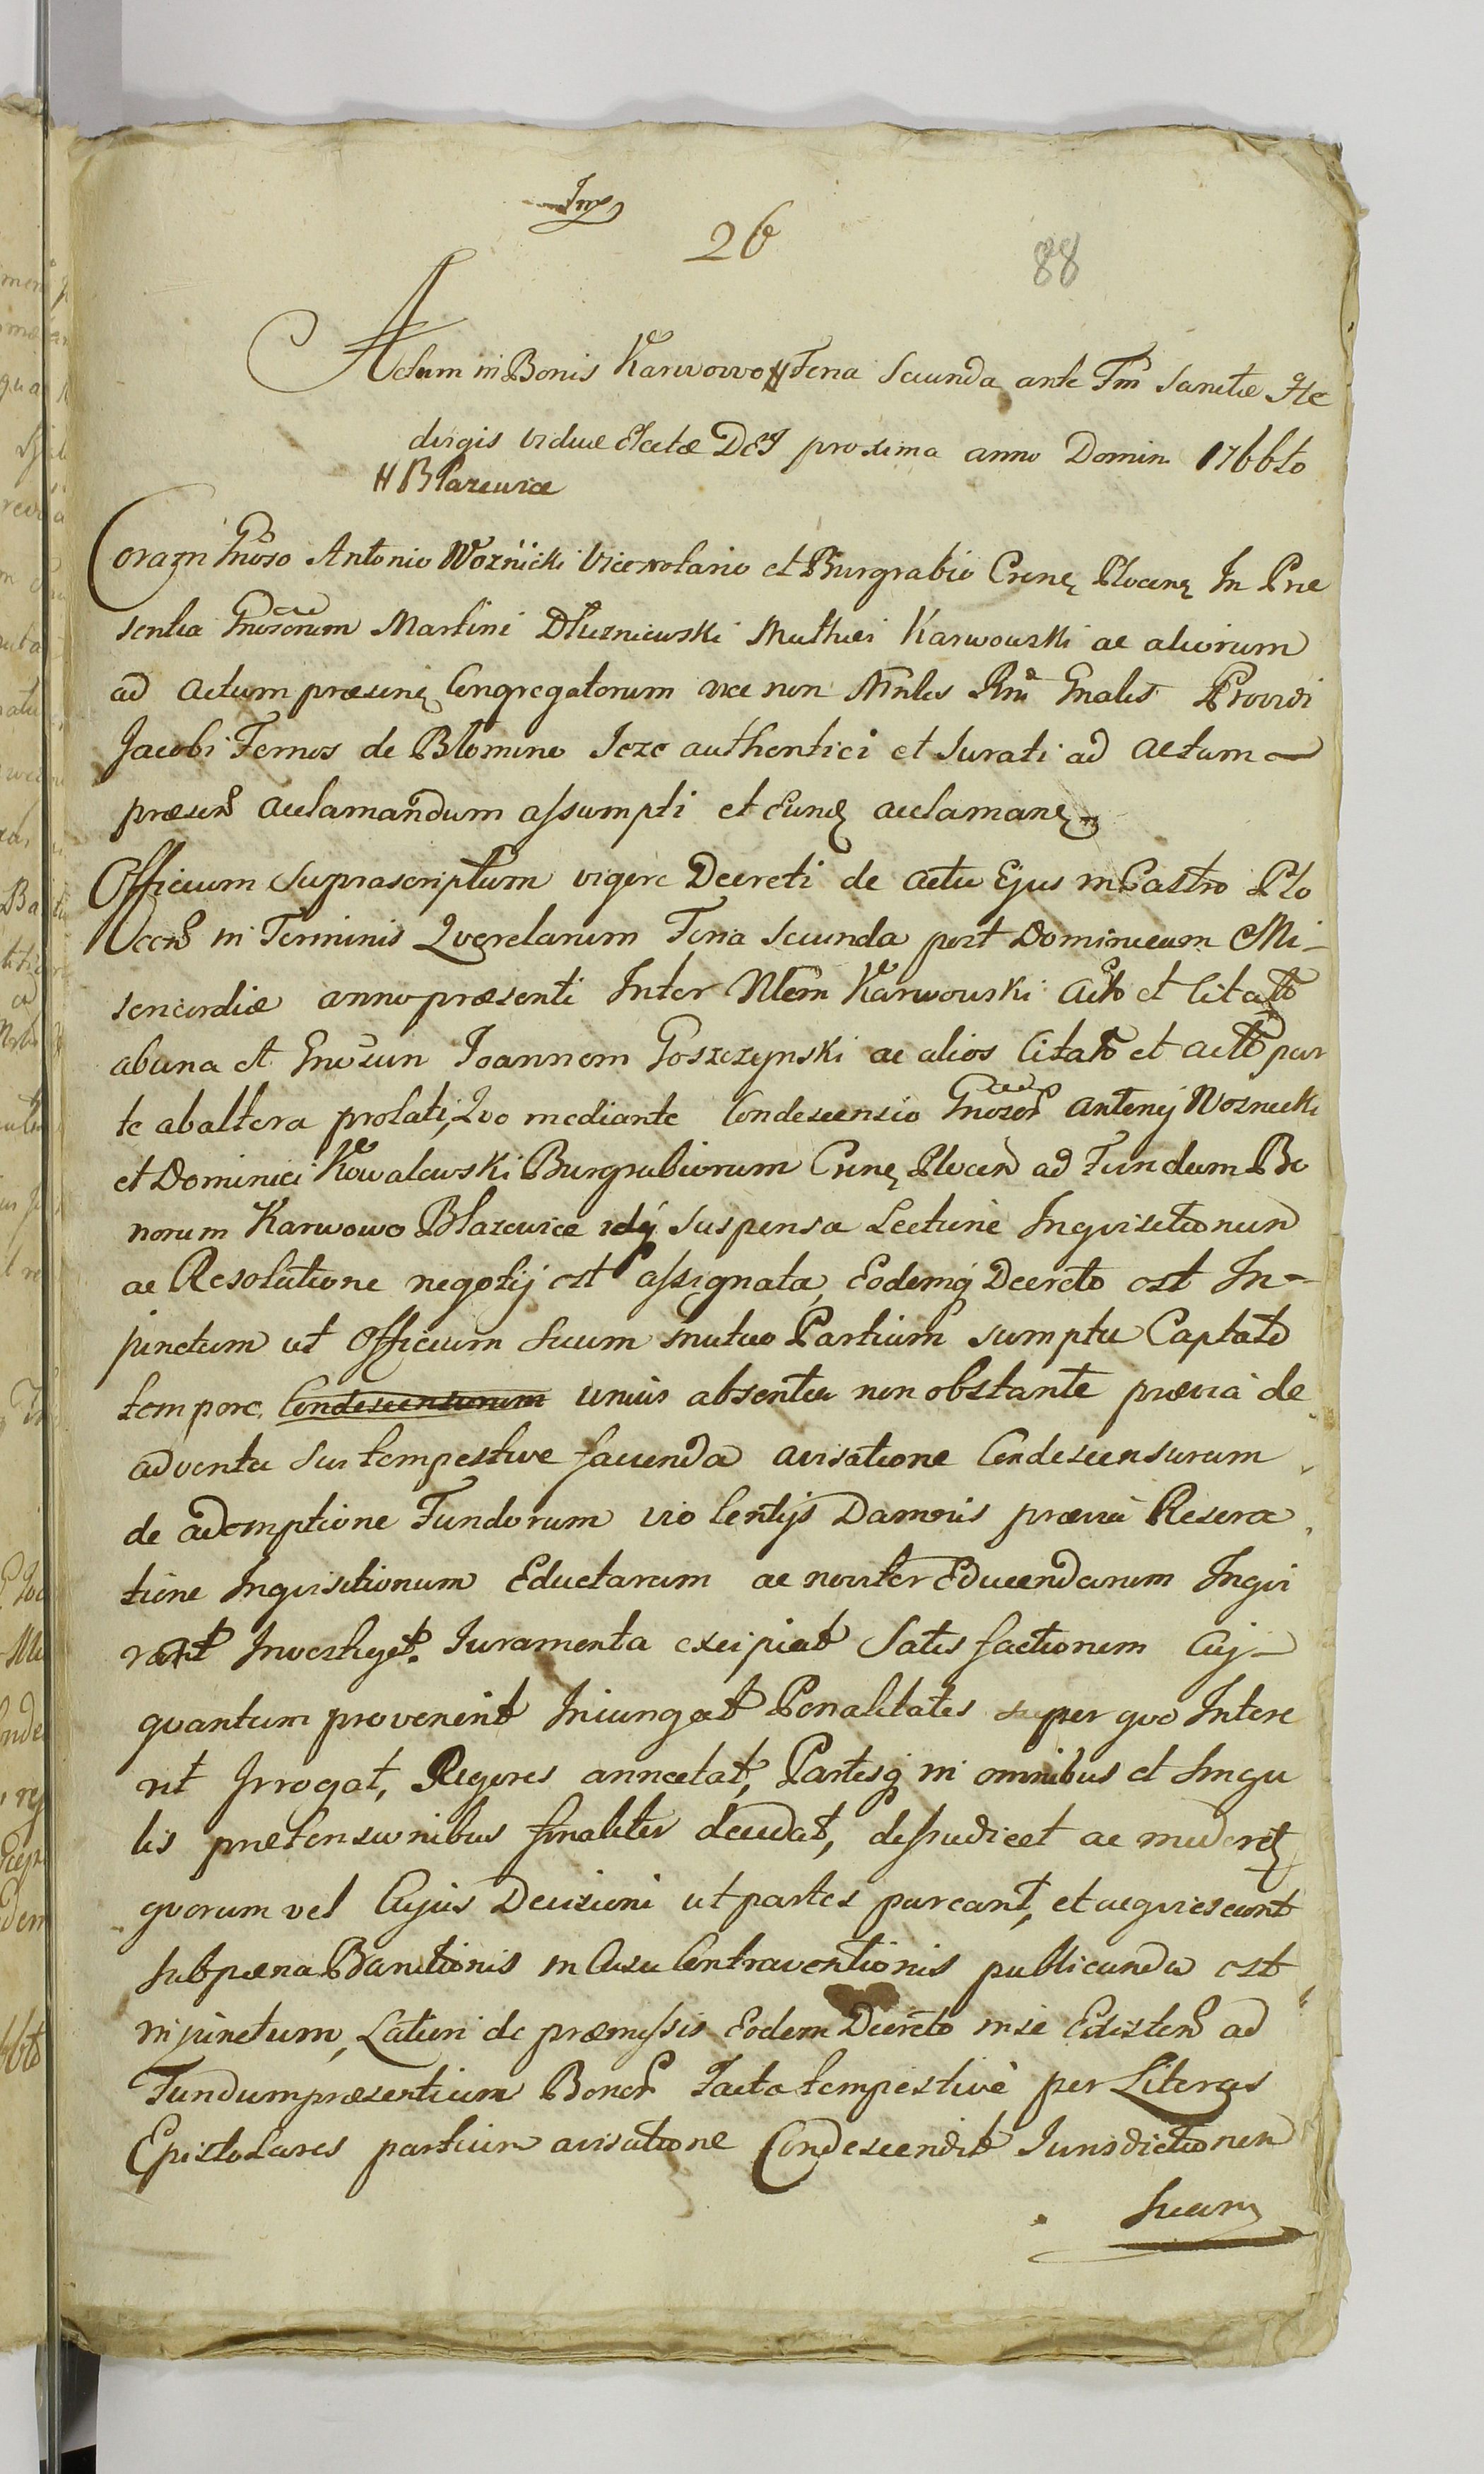 Imp
26
88
Actum in Bonis Karwowo H Feria Secunda ante Fm Sanctæ He
dvigis viduæ Electæ DEI proxima anno Domini 1766to
H Błazewice
Coram Gnoso Antonio Woznicki Vicenotario et Burgrabio Crene Plocene In Præ
sentia Gnosorum Martini Dłuzniewski Mathæi Karwowski ac aliorum
ad actum præsene Congregatorum nec non Mnlis Rni Gnalis Providi
Jacobi Fernos de Blomino Jeze authentici et Jurati ad actum
præsens acclamandum assumpti et Eunde acclamane
Officium Suprascriptum vigore Decreti de actu Ejus in Castro Plo
cens in Terminis Qverelarum Feria Secunda post Dominicam Mi-
sericordiæ anno præsenti Inter Nlem Karwowski actto et Citatto
ab una et Gnosum Joannem Goszczynski ac alios Citato et actto par
te ab altera prolati, Qvo mediante Condescensio Gnosor Antonij Woznicki
et Dominici Kowalewski Burgrabiorum Crene Plocen ad Fundum Bo
norum Karwowo Błazewice suspensa Lectione Inqvisitionum
ac Resolutione negotij est assignata, Eodemq Decreto est In-
junctum ut Officium Suum mutuo Partium sumptu Captato
tempore Condescensurum unius absentia non obstante prævia de
adventu Sui tempestive facienda avisatione Condescensurum
de ademptione Fundorum violentijs Damnis prævia Resera
tione Inqvisitionum Eductarum ac noviter Educendarum Inqvi
rat Investiget. Juramenta excipiat Satisfactionem Cuj-
qvantum provenerit Iniungat Penalitates super qvo Intere
rit Irrogat, Rigores annectat, Partesq in omnibus et Singu
lis prætensionibus finaliter decidat, disjudicet ac moderet
qvorum vel Cujus Decisioni ut partes pareant, et acqviescant
sub pœna Banitionis in Casu Contraventionis publicanda est
injunctum, Latiori de præmissis Eodem Decreto in se Existen ad
Fundum præsentium Bonor Facta tempestivè per Literas
Epistolares partium avisatione Condescendit Jurisdictionem
Suam